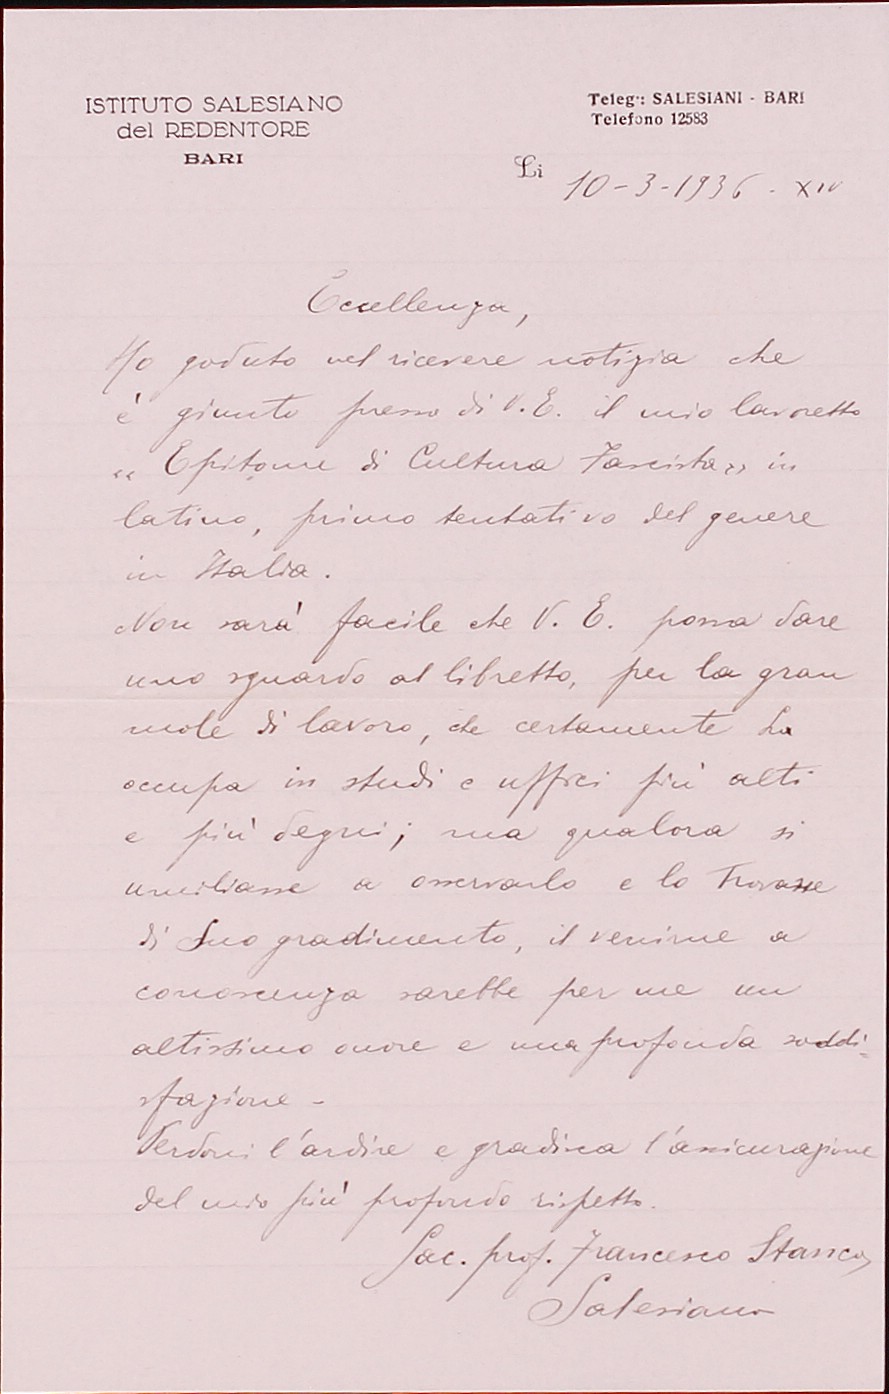 ISTITUTO SALESIANO
del REDENTORE
BARI
Teleg.: SALESIANI - BARI
Telefono 12583
Li 10-3-1936 - XIV
Eccellenza,
Ho goduto nel ricevere notizia che
è giunto presso di V. E. il mio lavoretto
"Epitome di Cultura Fascista" in
latino, primo tentativo del genere
in Italia.
Non sarà facile che V. E. possa dare
uno sguardo al libretto, per la gran
mole di lavoro, che certamente La
occupa in studi e uffici più alti
e più degni; ma qualora si
umiliasse a osservarlo e lo trovasse
di Suo gradimento, il venirne a
conoscenza sarebbe per me un
altissimo onore e una profonda soddi=
sfazione -
Perdoni l'ardire e gradisca l'assicurazione
del mio più profondo rispetto.
Sac. prof. Francesco
Salesiano